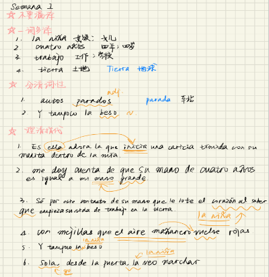 Semana 1
1. la niña 女孩
2. cuatro años 四年; 四岁
3. trabajo 工作;
4. tierra 土地 Tierra 地球
1. autos parados parada 车站
adj
2. Y tampoco la beso
1. Es ella ahora la que inicia una caricia tímida con su manita dentro de la mía
2. me doy cuenta de que su mano de cuatro años es igual a mi mano grande
3. Sé por este contacto de su mano que le late el corazón al saber que empieza su vida de trabajo en la tierra
la niña
4. con mejillas que el aire mañanero vuelve rojas
5. Y tampoco la beso
6. Sola, desde la puerta, la veo marchar